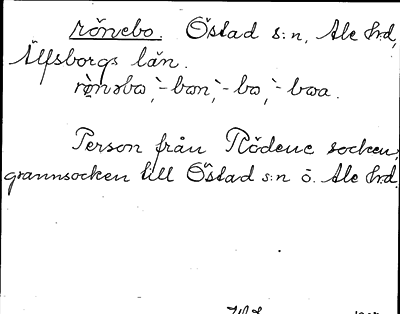 rönebo. Östad s:n, Ale hrd,
Älfsborgs län.
rönəbo, -bon, -bo, -boa.
Person från Rödene socken,
grannsocken till Östad s:n ö. Ale hrd.